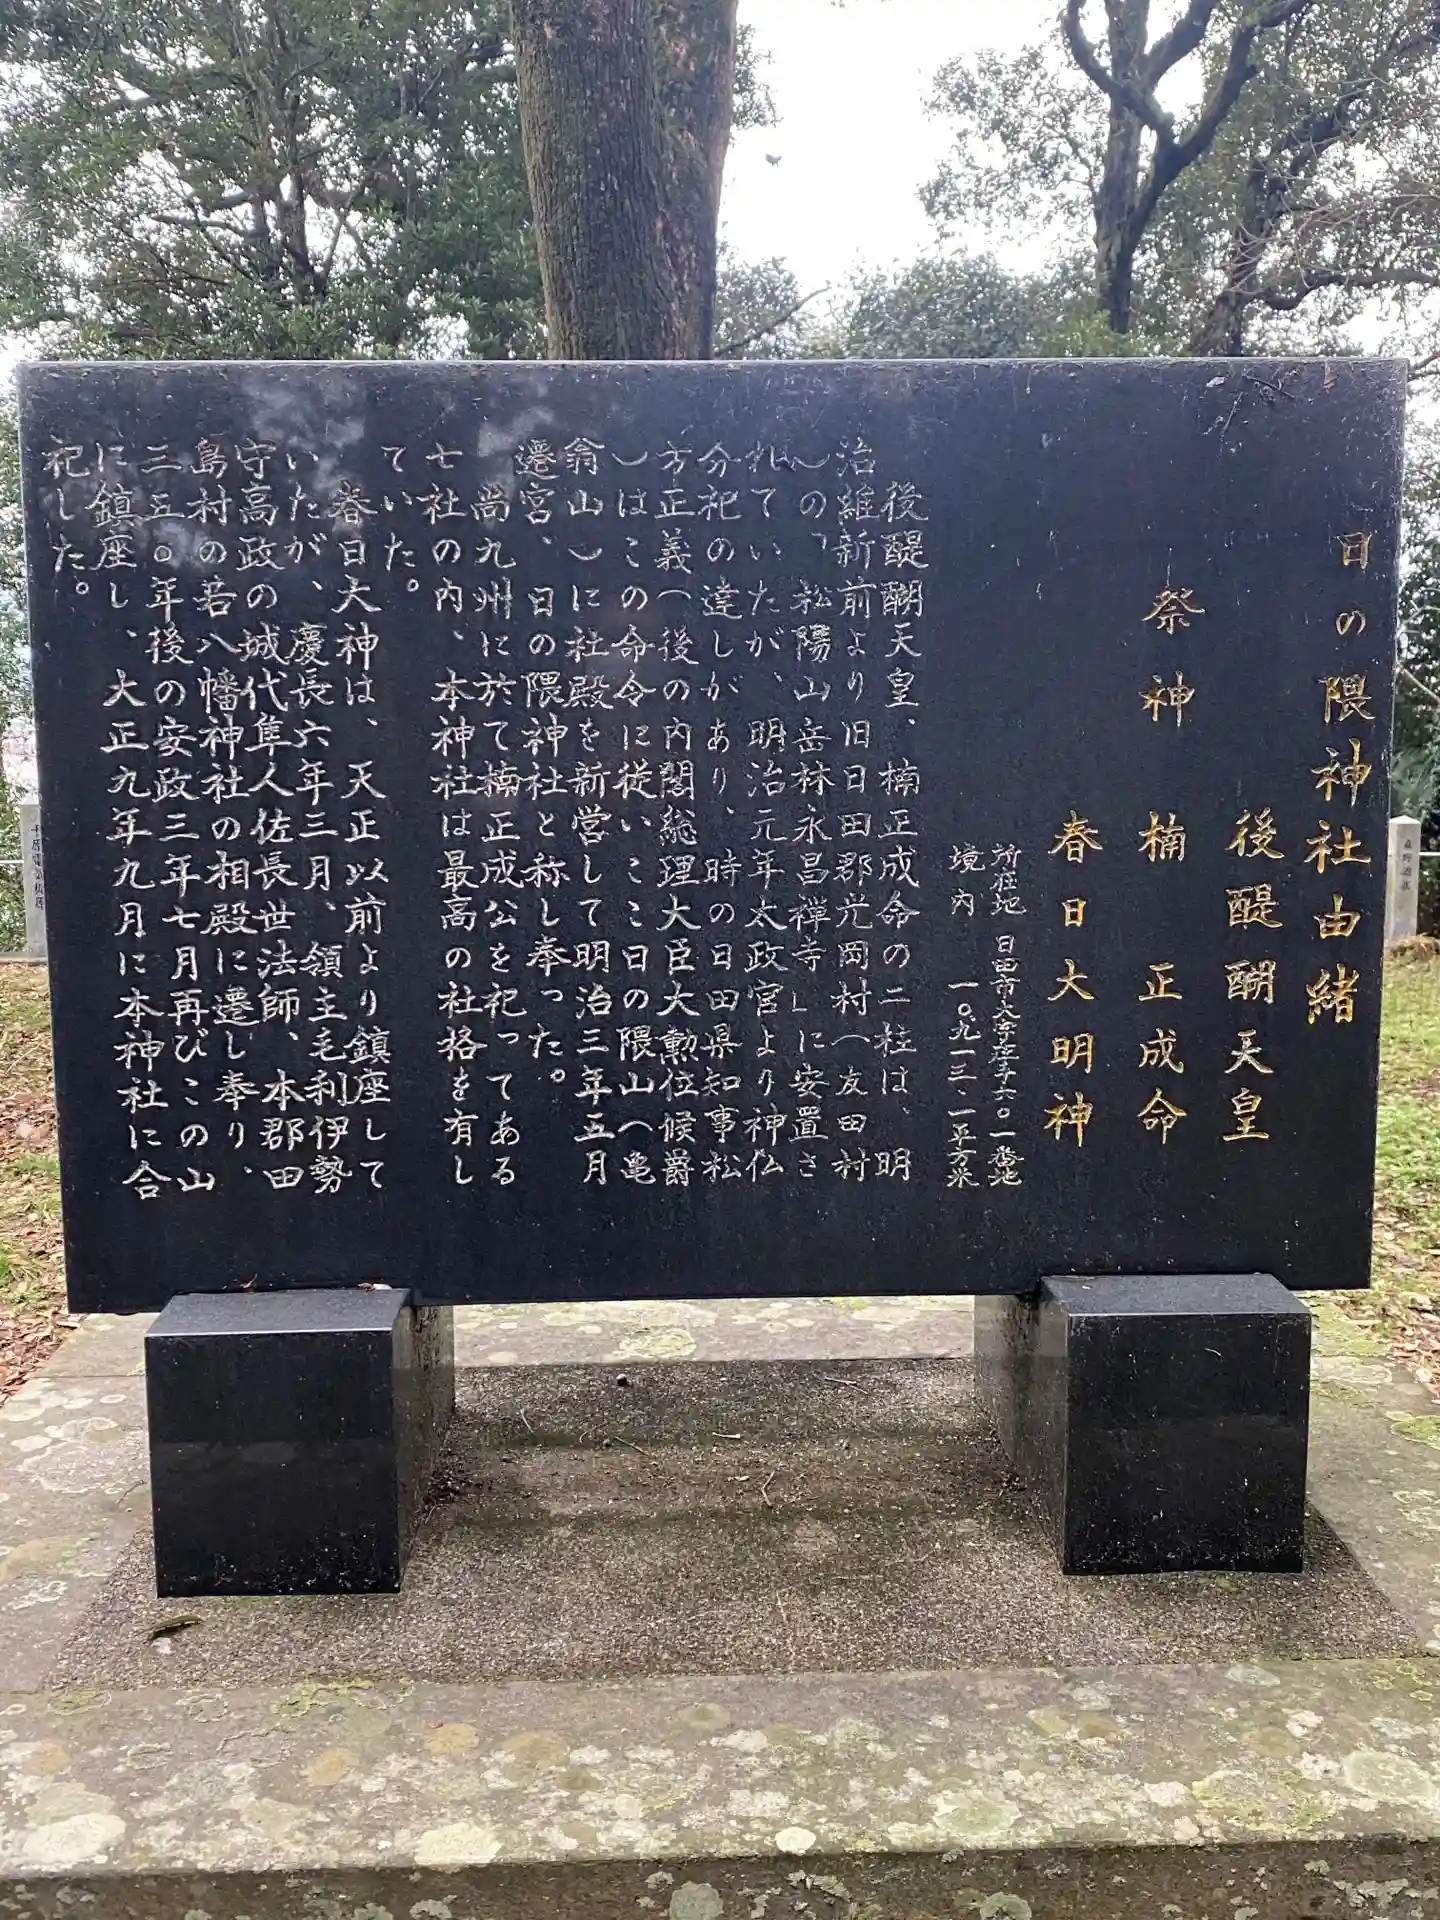 日の隈神社由緒
後醍醐天皇
祭神　楠正成命
春日大明神
所在地　日田市大字庄手六〇一番地
境内　一〇、九一三・一平方米
後醍醐天皇、楠正成命の二柱は、明
治維新前より旧日田郡光岡村（友田村
）の「松陽山岳林永昌禅寺」に安置さ
れていたが、明治元年太政官より神仏
分祀の達しがあり、時の日田県知事松
方正義（後の内閣総理大臣大勲位候爵
）はこの命令に従いここ日の隈山（亀
翁山）に社殿を新営して明治三年五月
遷宮、日の隈神社と称し奉った。
尚九州に於て楠正成公を祀ってある
七社の内、本神社は最高の社格を有し
ていた。
春日大神は、天正以前より鎮座して
いたが、慶長六年三月、領主毛利伊勢
守高政の城代隼人佐長世法師、本郡田
島村の若八幡神社の相殿に遷し奉り、
三五〇年後の安政三年七月再びこの山
に鎮座し、大正九年九月に本神社に合
祀した。